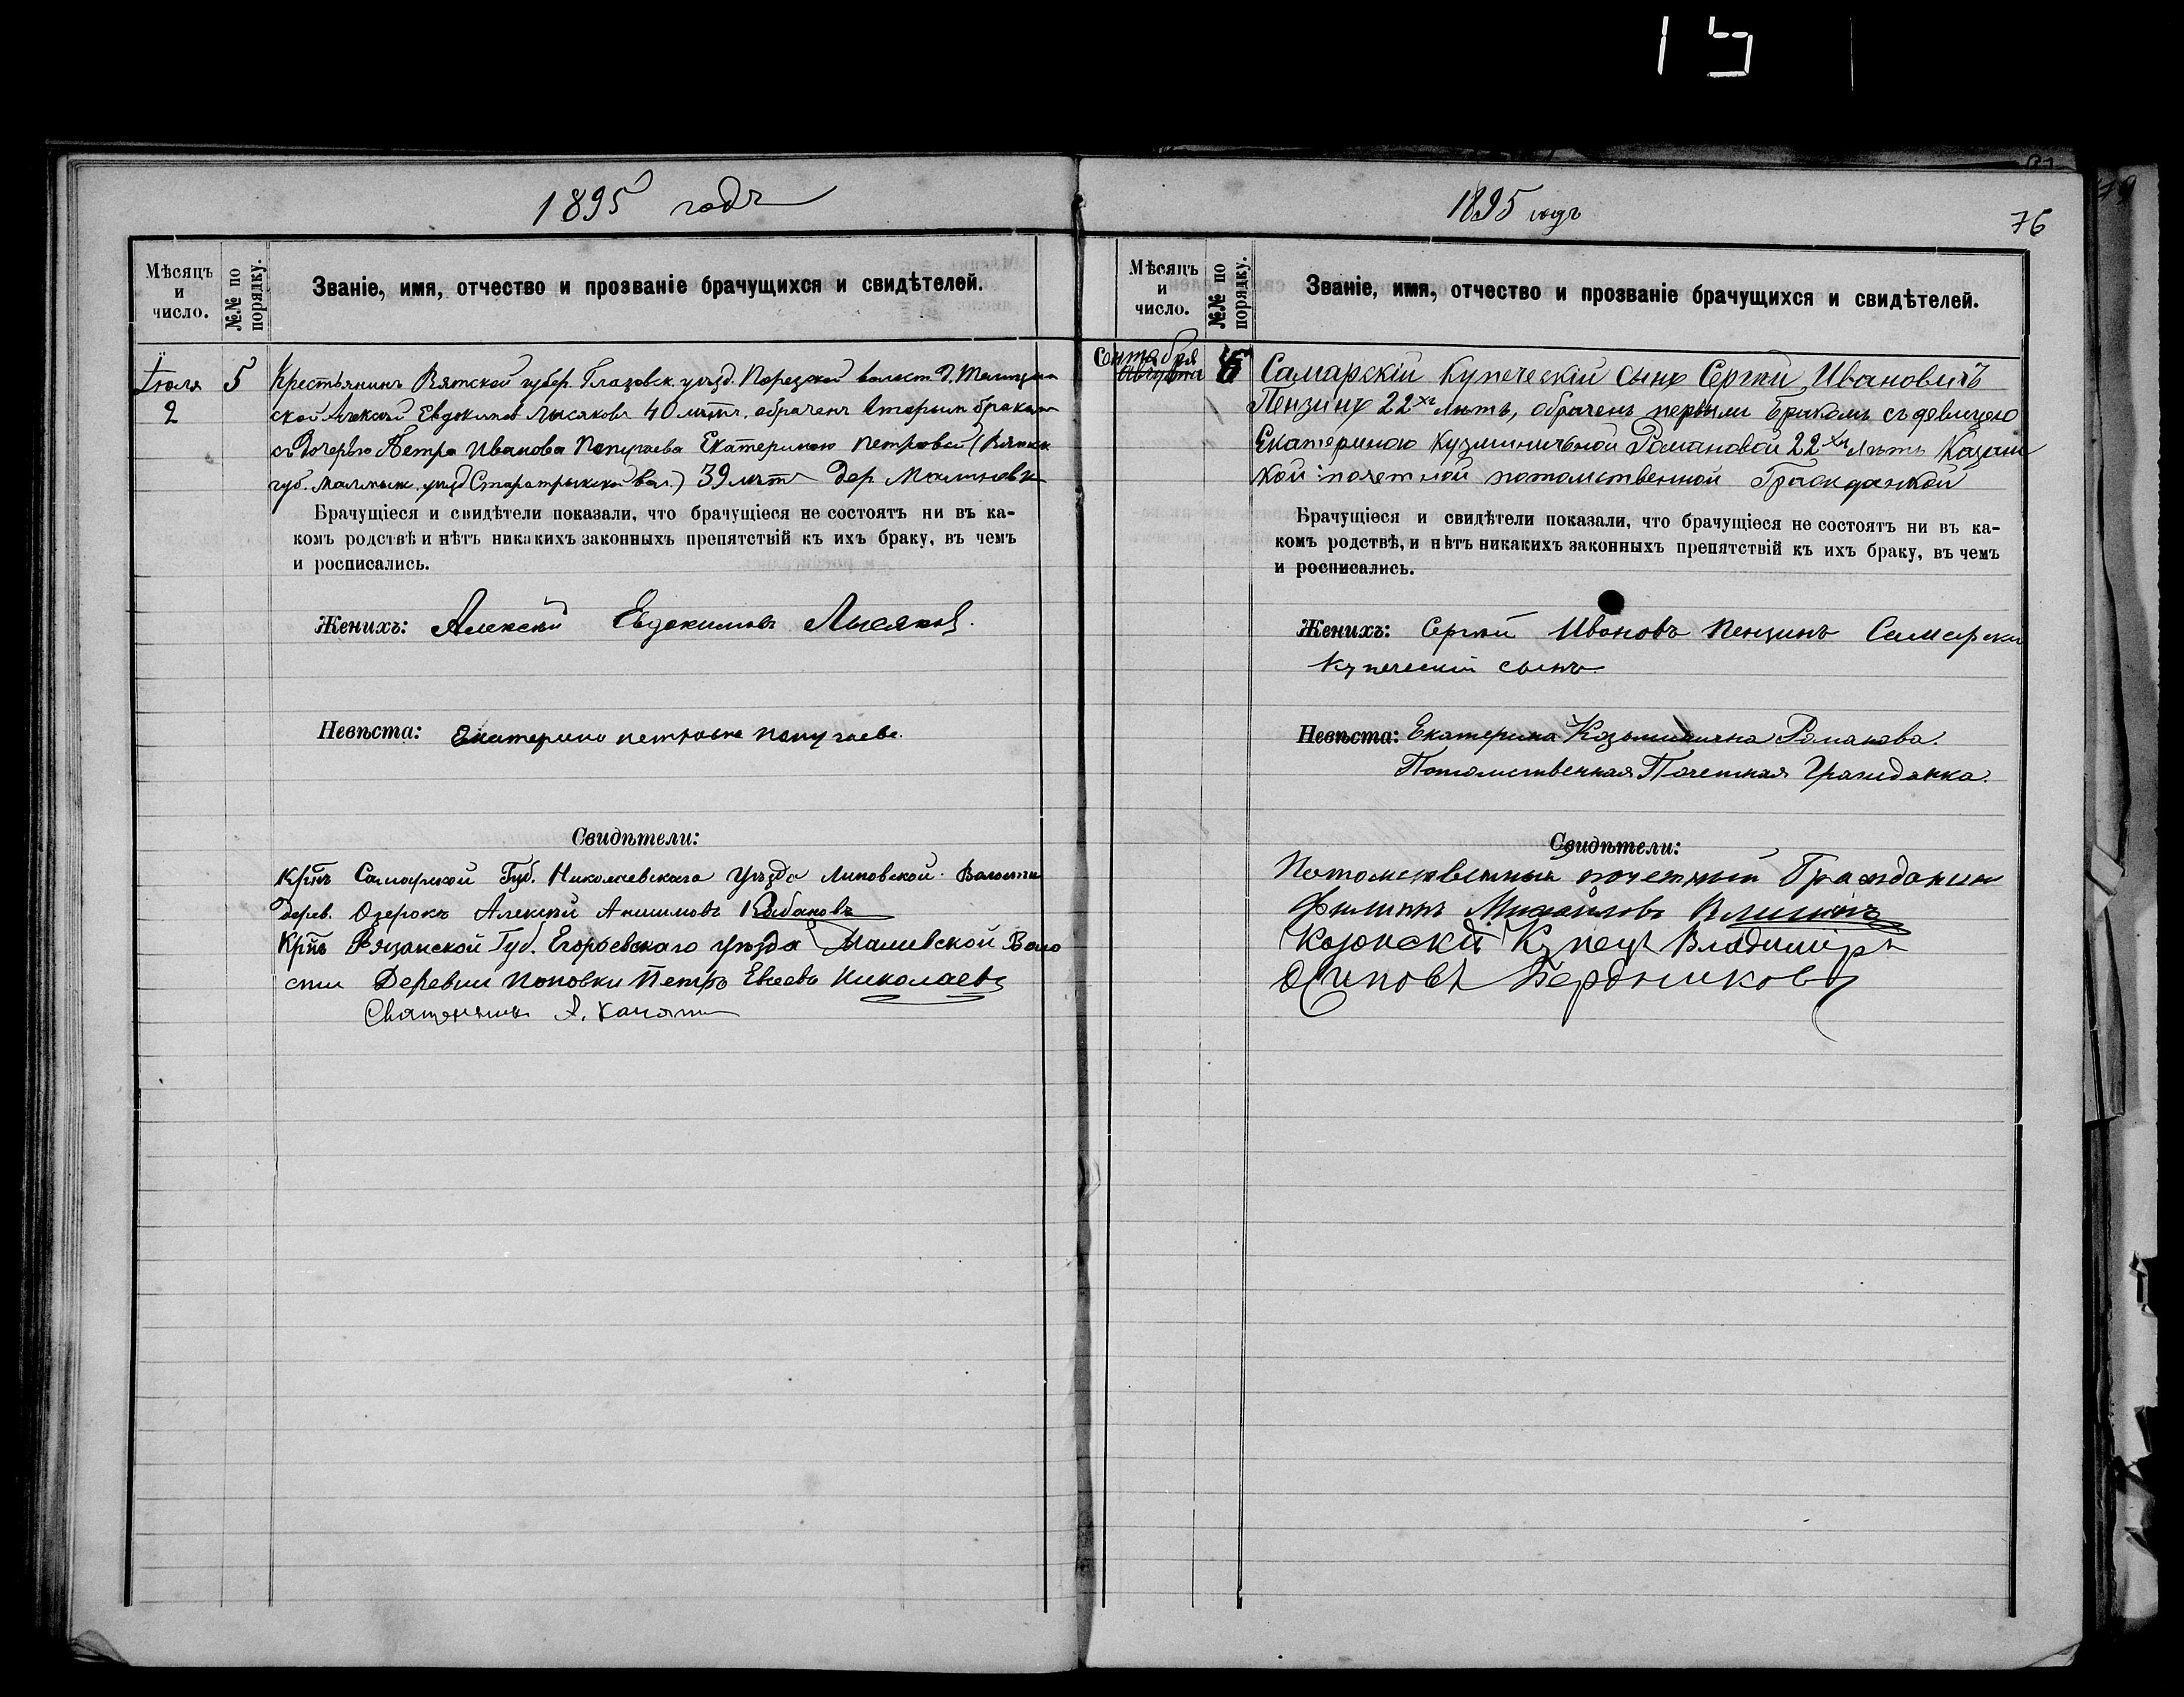 1895 годъ
Мѣсяцъ и число.
№№ по порядку.
Званіе, имя, отчество и прозваніе брачущихся и свидѣтелей.
Іюля 2
5
Крестьянинъ Вятской губер. Глазовск. уѣзд. Порезской волост. Д.
ской Алексѣй Евдокимов Лысяковъ 40 лѣтъ. обраченъ вторым бракомъ
съ Дочерью Петра Иванова Попугаева Екатериною Петровой (Вятск
губ. Малмыж. уѣзд Старотрыкской вол.) 39 лѣтъ дер Малиновк
Брачущіеся и свидѣтели показали, что брачущіеся не состоятъ ни въ ка-
комъ родствѣ и нѣтъ никакихъ законныхъ препятствій къ ихъ браку, въ чемъ
и росписались.
Женихъ: Алексѣй Евдокимовъ Лысяковъ.
Невѣста: Екатерина петровна попугаева.
Свидѣтели:
Крнъ Самарской Губ. Николаевскаго Уѣзда Липовской Волости
дерев. Озерокъ Алексѣй Анисимовъ Кабановъ
Крнъ Рязанской Губ. Егорьевскаго уѣзда Маливской Воло
сти Деревни Поповки Петръ Евсеевъ Николаевъ
Священникъ А. Калягин
1895 годъ
76
Мѣсяцъ и число.
№№ по порядку.
Званіе, имя, отчество и прозваніе брачущихся и свидѣтелей.
Сентября
Августа
6
Самарскій Купеческій сынъ Сергѣй Ивановичъ
Пензинъ 22хъ лѣтъ, обрачен первымъ бракомъ съ девицею
Екатериною Кузминичной Романовой 22хъ лѣтъ Казанс
кой почетной потомственной Гражданкой
Брачущіеся и свидѣтели показали, что брачущіеся не состоятъ ни въ ка-
комъ родствѣ, и нѣтъ никакихъ законныхъ препятствій къ ихъ браку, въ чемъ
и росписались.
Женихъ: Сергѣй Ивановъ Пензинъ Самарски
Купеческій сынъ.
Невѣста: Екатерина Козьминична Романова.
Потомственная Почетная Гражданка.
Свидѣтели:
Потомственный почетный Гражданин
Филиппъ Михайловъ
Козонскій Купецъ Владиміръ
Осиповъ Бердниковъ